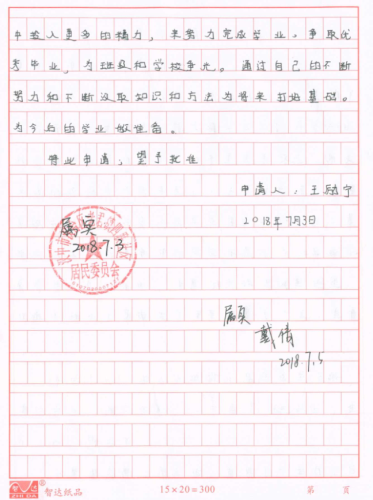 中投入更多的精力，来努力完成学业。争取优
秀毕业，为班级和学校争光。通过自己的不断
努力和不断汲取知识和方法为将来打好基础。
为今后的学业做准备。
特此申请，望予批准
申请人：王励宁
2018年7月3日
属实
2018.7.3
居民委员会
属实
戴倩
2018.7.5
智达纸品
15×20=300
第 页